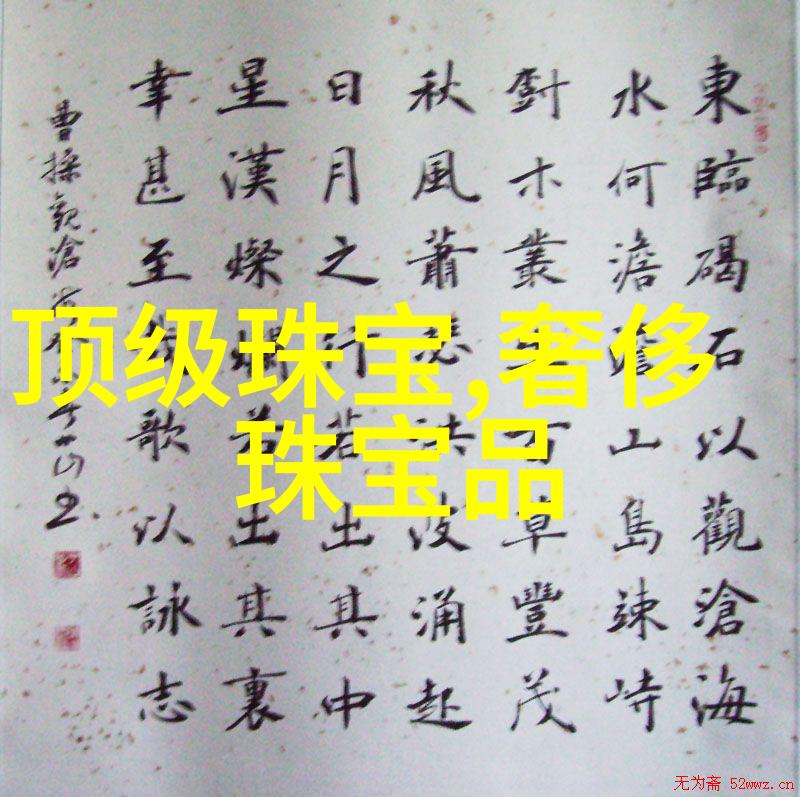 東臨碣石以觀滄海
水何澹澹山島竦峙
木叢生百草豐茂
秋風蕭瑟洪波涌起
日月之行若出其中
星漢燦爛若出其裏
幸甚至哉歌以詠志
曹操觀滄海
顶级珠宝,奢侈
珠宝品
无为斋 52wwz.cn